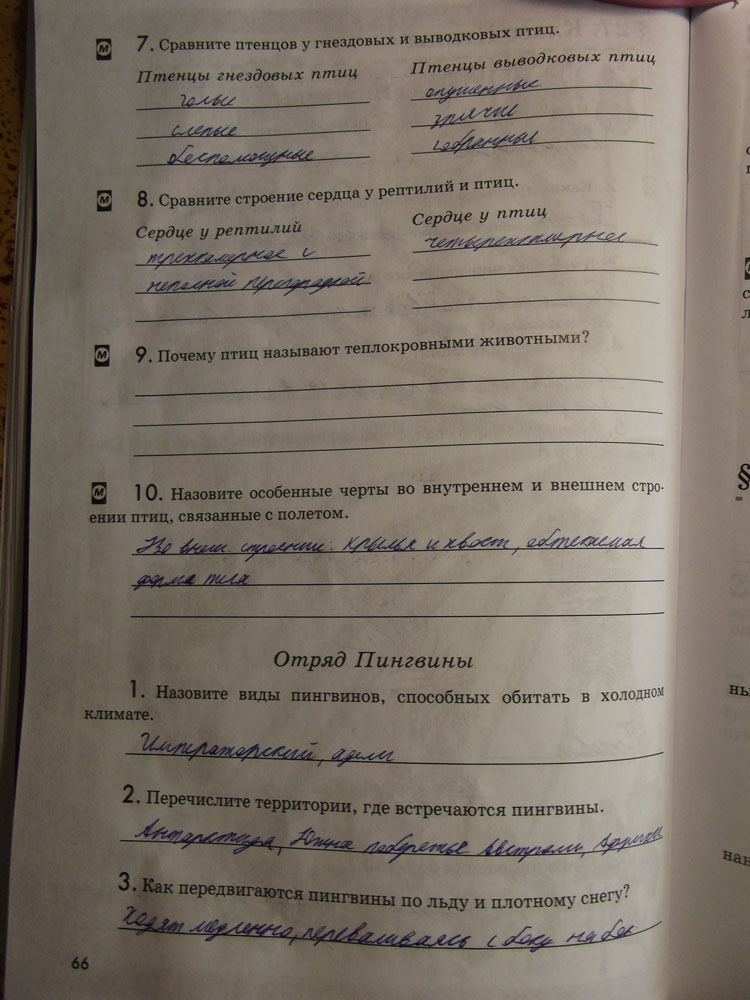 7. Сравните птенцов у гнездовых и выводковых птиц.
Птенцы гнездовых птиц
Птенцы выводковых птиц
голые
опушенные
слепые
зрячие
беспомощные
8. Сравните строение сердца у рептилий и птиц.
Сердце у рептилий
Сердце у птиц
трехкамерное с
четырехкамерное
неполной перегородкой
9. Почему птиц называют теплокровными животными?
10. Назовите особенные черты во внутреннем и внешнем стро-
ении птиц, связанные с полетом.
Во внеш. строении: крылья и хвост, обтекаемая
форма тела
Отряд Пингвины
1. Назовите виды пингвинов, способных обитать в холодном
климате.
Императорский, адели
2. Перечислите территории, где встречаются пингвины.
Антарктида, Южное побережье Австралии, Африки
3. Как передвигаются пингвины по льду и плотному снегу?
Ходят медленно, переваливаясь с боку на бок
66
§